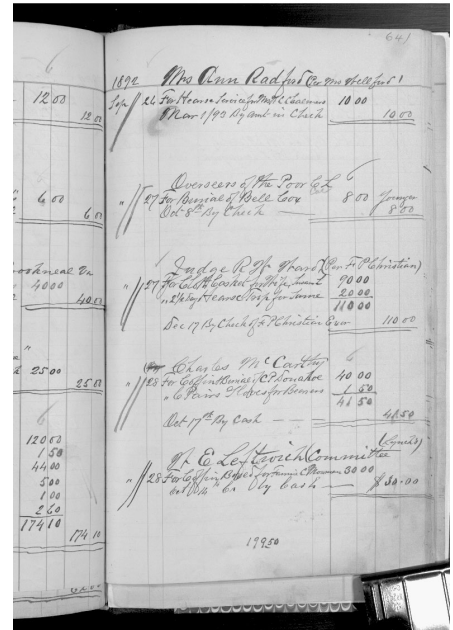 6
12 00
12 00
"
6 00
6 00
oshneal Va
40 00
40 00
"
25 00
25 00
6
120 00
1 50
44 00
5 00
1 00
2 60
174 10
174 10
641
1892 Mrs Ann Radford (Per Mrs Wellford)
Sep 26 For Hearse Service for 10 00
Mar 1/93 By amt in Check 10 00
Overseers of the Poor C L 6
" 27 For Burial of Bell Cox 8 00
Oct 8th By Check — 8 00
Judge R W Ward (Per F P Christian)
" 27 For Cloth Casket for 90 00
" 2 1/2 days Hearse for Same 20 00
110 00
Dec 17 By Check of F P Christian Exor 110 00
Charles McCarthy 6
" 28 For Coffin & Burial of P Donahoe 40 00
" 6 Pairs Gloves for Bearers 1 50
41 50
Oct 17th By Cash — 41 50
(Lynch's)
W E Leftwich Committee
" 28 For Coffin Box 30 00
By Cash — $30.00
199 50